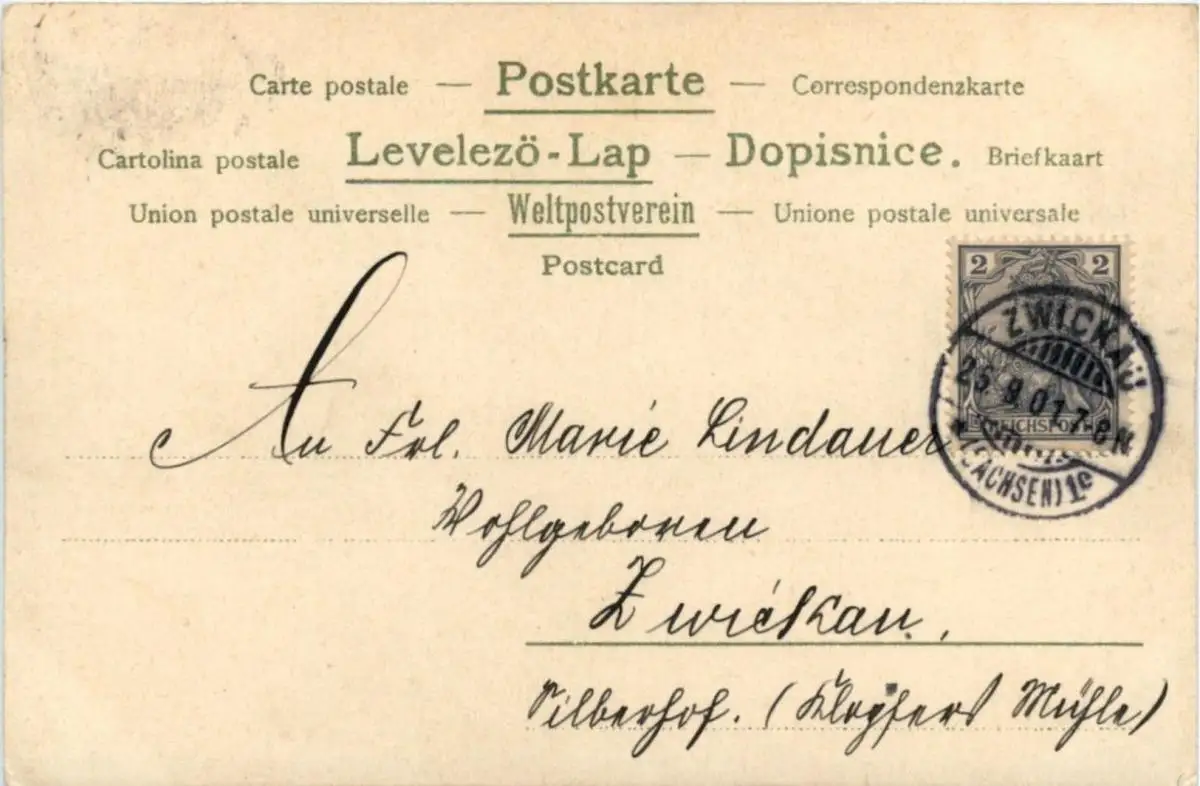 Carte postale — Postkarte — Correspondenzkarte
Cartolina postale Levelezö-Lap — Dopisnice. Briefkaart
Union postale universelle — Weltpostverein — Unione postale universale
Postcard
2 2
REICHSPOST
ZWICKAU
25.9.01.7-8N
(SACHSEN) 1c
An Frl. Marie Lindauer
Wohlgeboren
Zwickau,
Silberhof. (Klopfers Mühle)